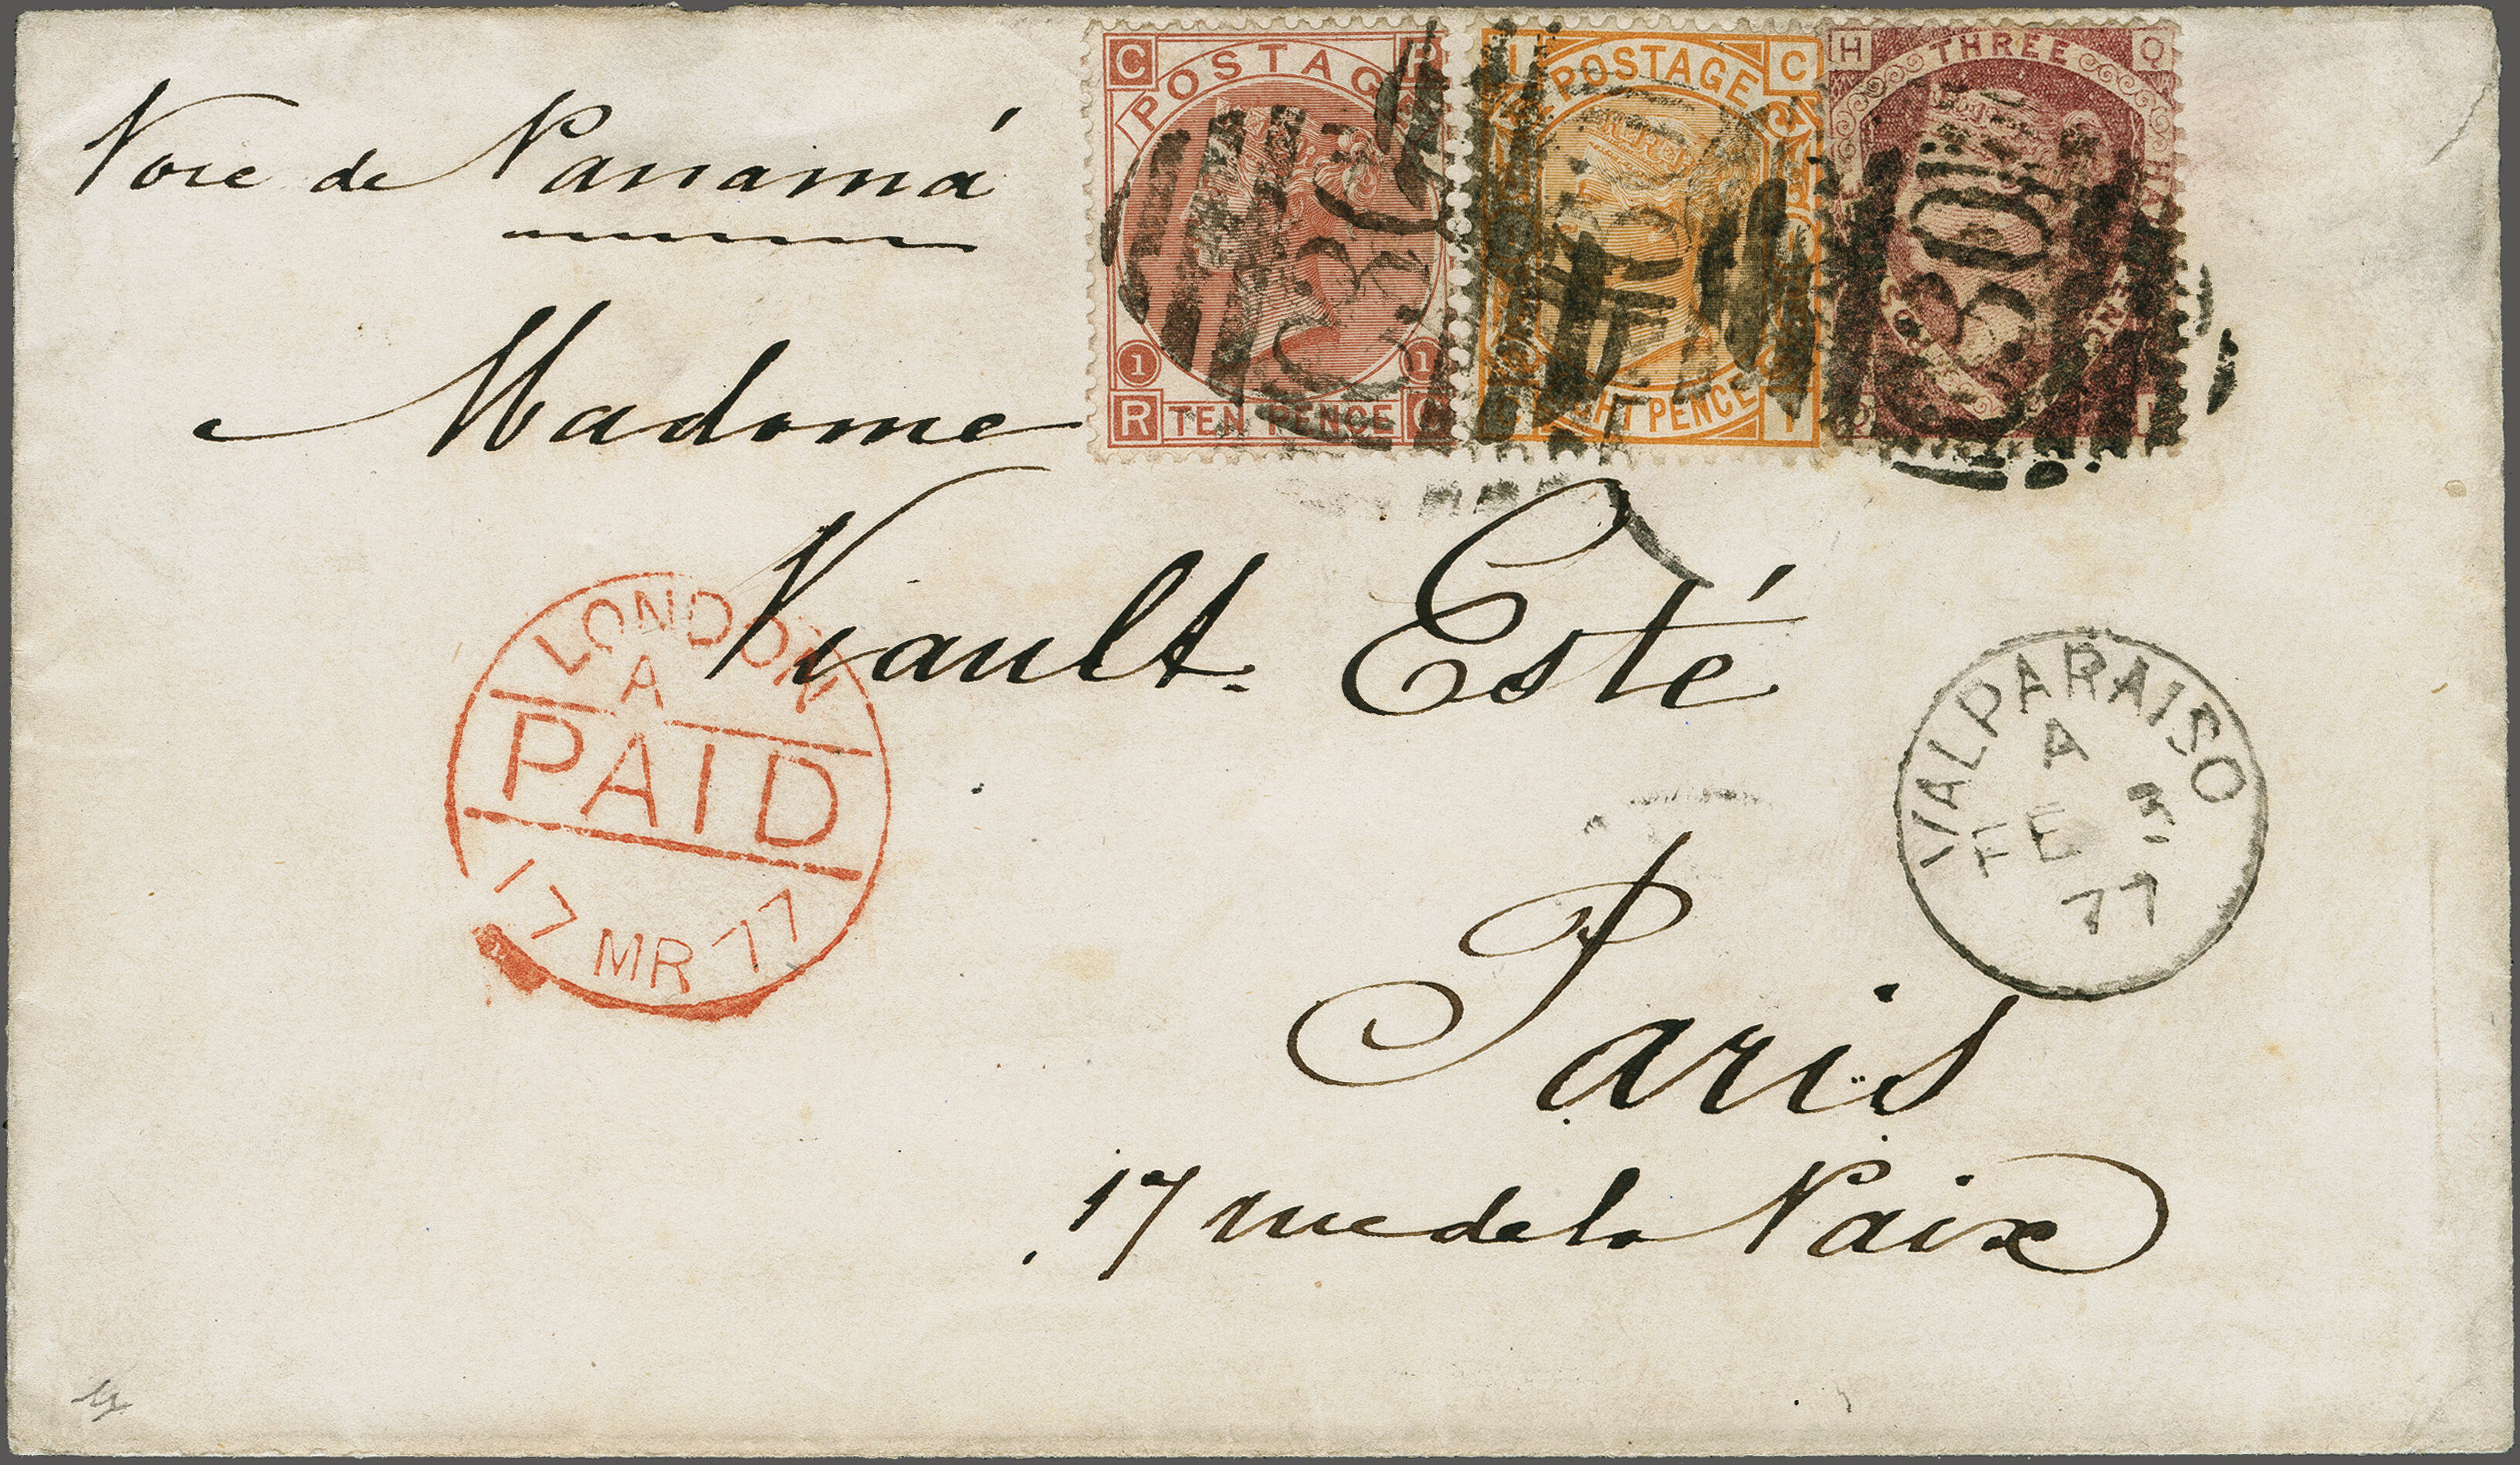 Voie de Panamá
Madame
Viault-Esté
Paris
17 rue de la Paix
C
POSTAGE
1 1
R TEN PENCE C
I POSTAGE C
EIGHT PENCE I
H THREE Q
C30
C30
C30
LONDON
A
PAID
17 MR 77
VALPARAISO
A
FE 3
77